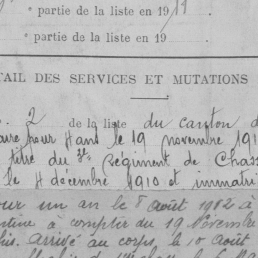 e partie de la liste en 19 11
e partie de la liste en 19
AIL DES SERVICES ET MUTATIONS
2 de la liste du canton d
aire pour 4 ans le 19 novembre 191
titre du Régiment de Chass
le 4 décembre 1910 et immatri
our un an le 8 août 1912 à
ntine à compter du 19 Novembre
his. Arrivé au corps le 10 août